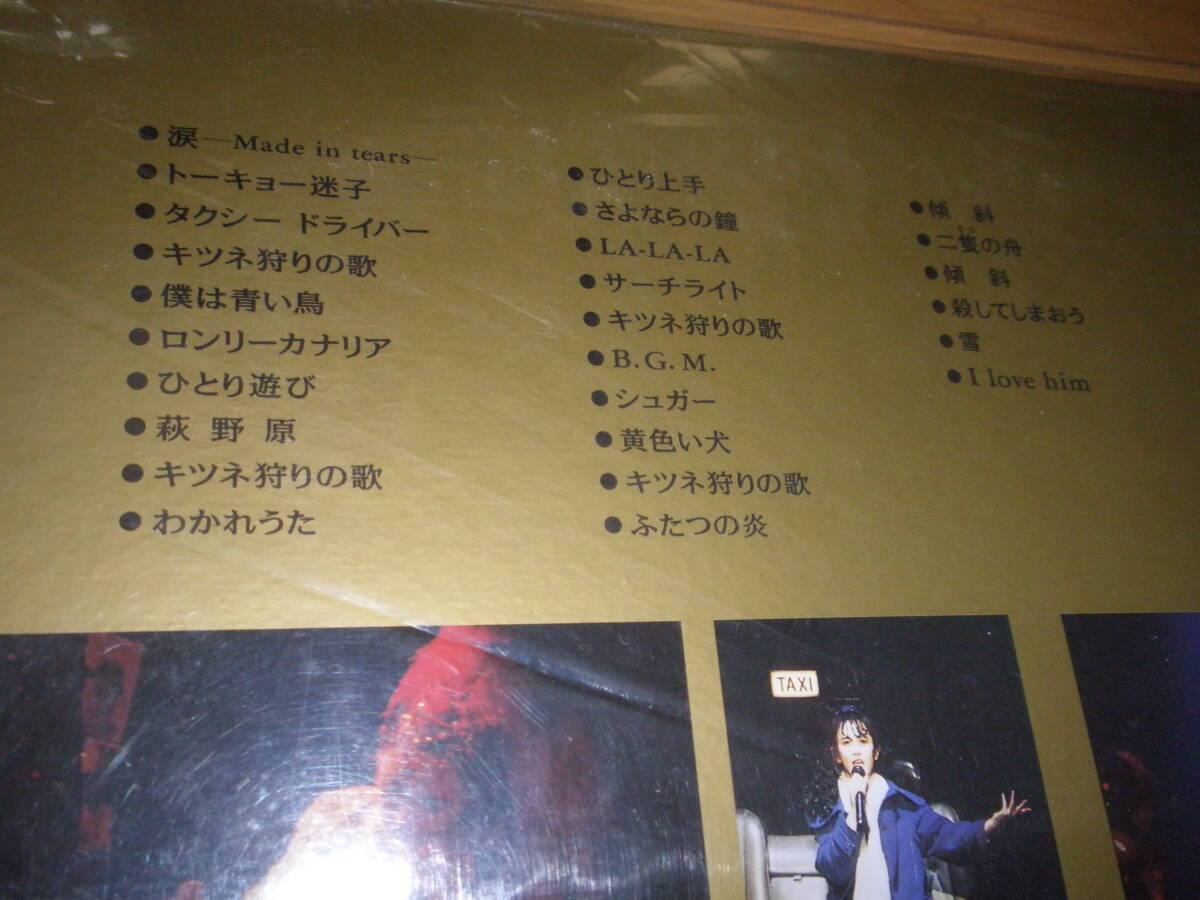 ●涙—Made in tears—
●トーキョー迷子
●タクシー ドライバー
●キツネ狩りの歌
●僕は青い鳥
●ロンリーカナリア
●ひとり遊び
●萩 野 原
●キツネ狩りの歌
●わかれうた
●ひとり上手
●さよならの鐘
●LA-LA-LA
●サーチライト
●キツネ狩りの歌
●B.G.M.
●シュガー
●黄色い犬
●キツネ狩りの歌
●ふたつの炎
●傾 斜
●二隻の舟
●傾 斜
●殺してしまおう
●雪
●I love him
TAXI